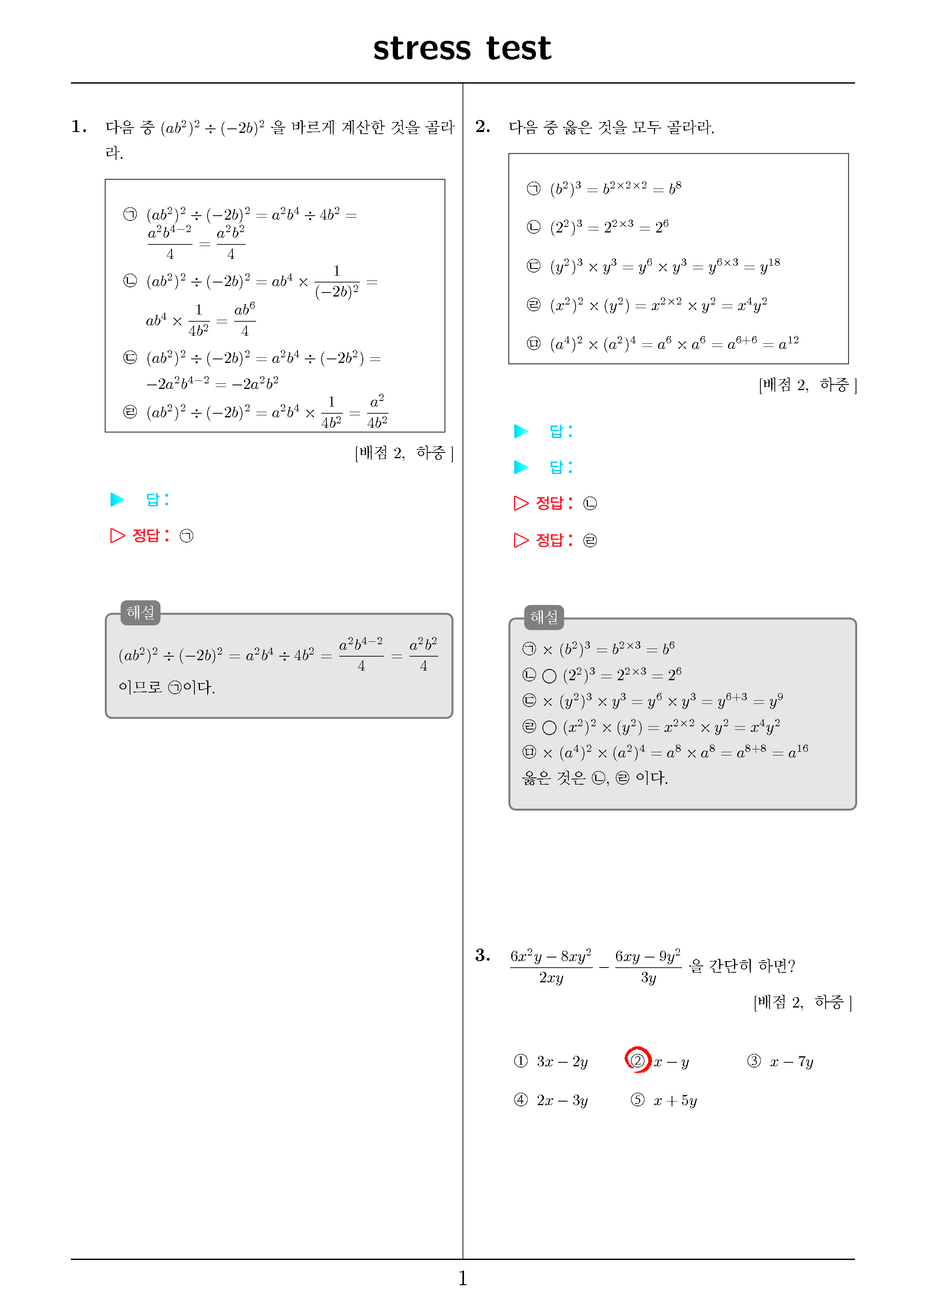 stress test
1. 다음 중 (ab²)² ÷ (−2b)² 을 바르게 계산한 것을 골라
라.
㉠ (ab²)² ÷ (−2b)² = a²b⁴ ÷ 4b² =
a²b⁴⁻²/4 = a²b²/4
㉡ (ab²)² ÷ (−2b)² = ab⁴ × 1/(−2b)² =
ab⁴ × 1/4b² = ab⁶/4
㉢ (ab²)² ÷ (−2b)² = a²b⁴ ÷ (−2b²) =
−2a²b⁴⁻² = −2a²b²
㉣ (ab²)² ÷ (−2b)² = a²b⁴ × 1/4b² = a²/4b²
[배점 2, 하중 ]
▶ 답 :
▷ 정답 : ㉠
해설
(ab²)² ÷ (−2b)² = a²b⁴ ÷ 4b² = a²b⁴⁻²/4 = a²b²/4
이므로 ㉠이다.
2. 다음 중 옳은 것을 모두 골라라.
㉠ (b²)³ = b²ˣ²ˣ² = b⁸
㉡ (2²)³ = 2²ˣ³ = 2⁶
㉢ (y²)³ × y³ = y⁶ × y³ = y⁶ˣ³ = y¹⁸
㉣ (x²)² × (y²) = x²ˣ² × y² = x⁴y²
㉤ (a⁴)² × (a²)⁴ = a⁶ × a⁶ = a⁶⁺⁶ = a¹²
[배점 2, 하중 ]
▶ 답 :
▶ 답 :
▷ 정답 : ㉡
▷ 정답 : ㉣
해설
㉠ × (b²)³ = b²ˣ³ = b⁶
㉡ ◯ (2²)³ = 2²ˣ³ = 2⁶
㉢ × (y²)³ × y³ = y⁶ × y³ = y⁶⁺³ = y⁹
㉣ ◯ (x²)² × (y²) = x²ˣ² × y² = x⁴y²
㉤ × (a⁴)² × (a²)⁴ = a⁸ × a⁸ = a⁸⁺⁸ = a¹⁶
옳은 것은 ㉡, ㉣ 이다.
3. (6x²y − 8xy²)/2xy − (6xy − 9y²)/3y 을 간단히 하면?
[배점 2, 하중 ]
① 3x − 2y ② x − y ③ x − 7y
④ 2x − 3y ⑤ x + 5y
1